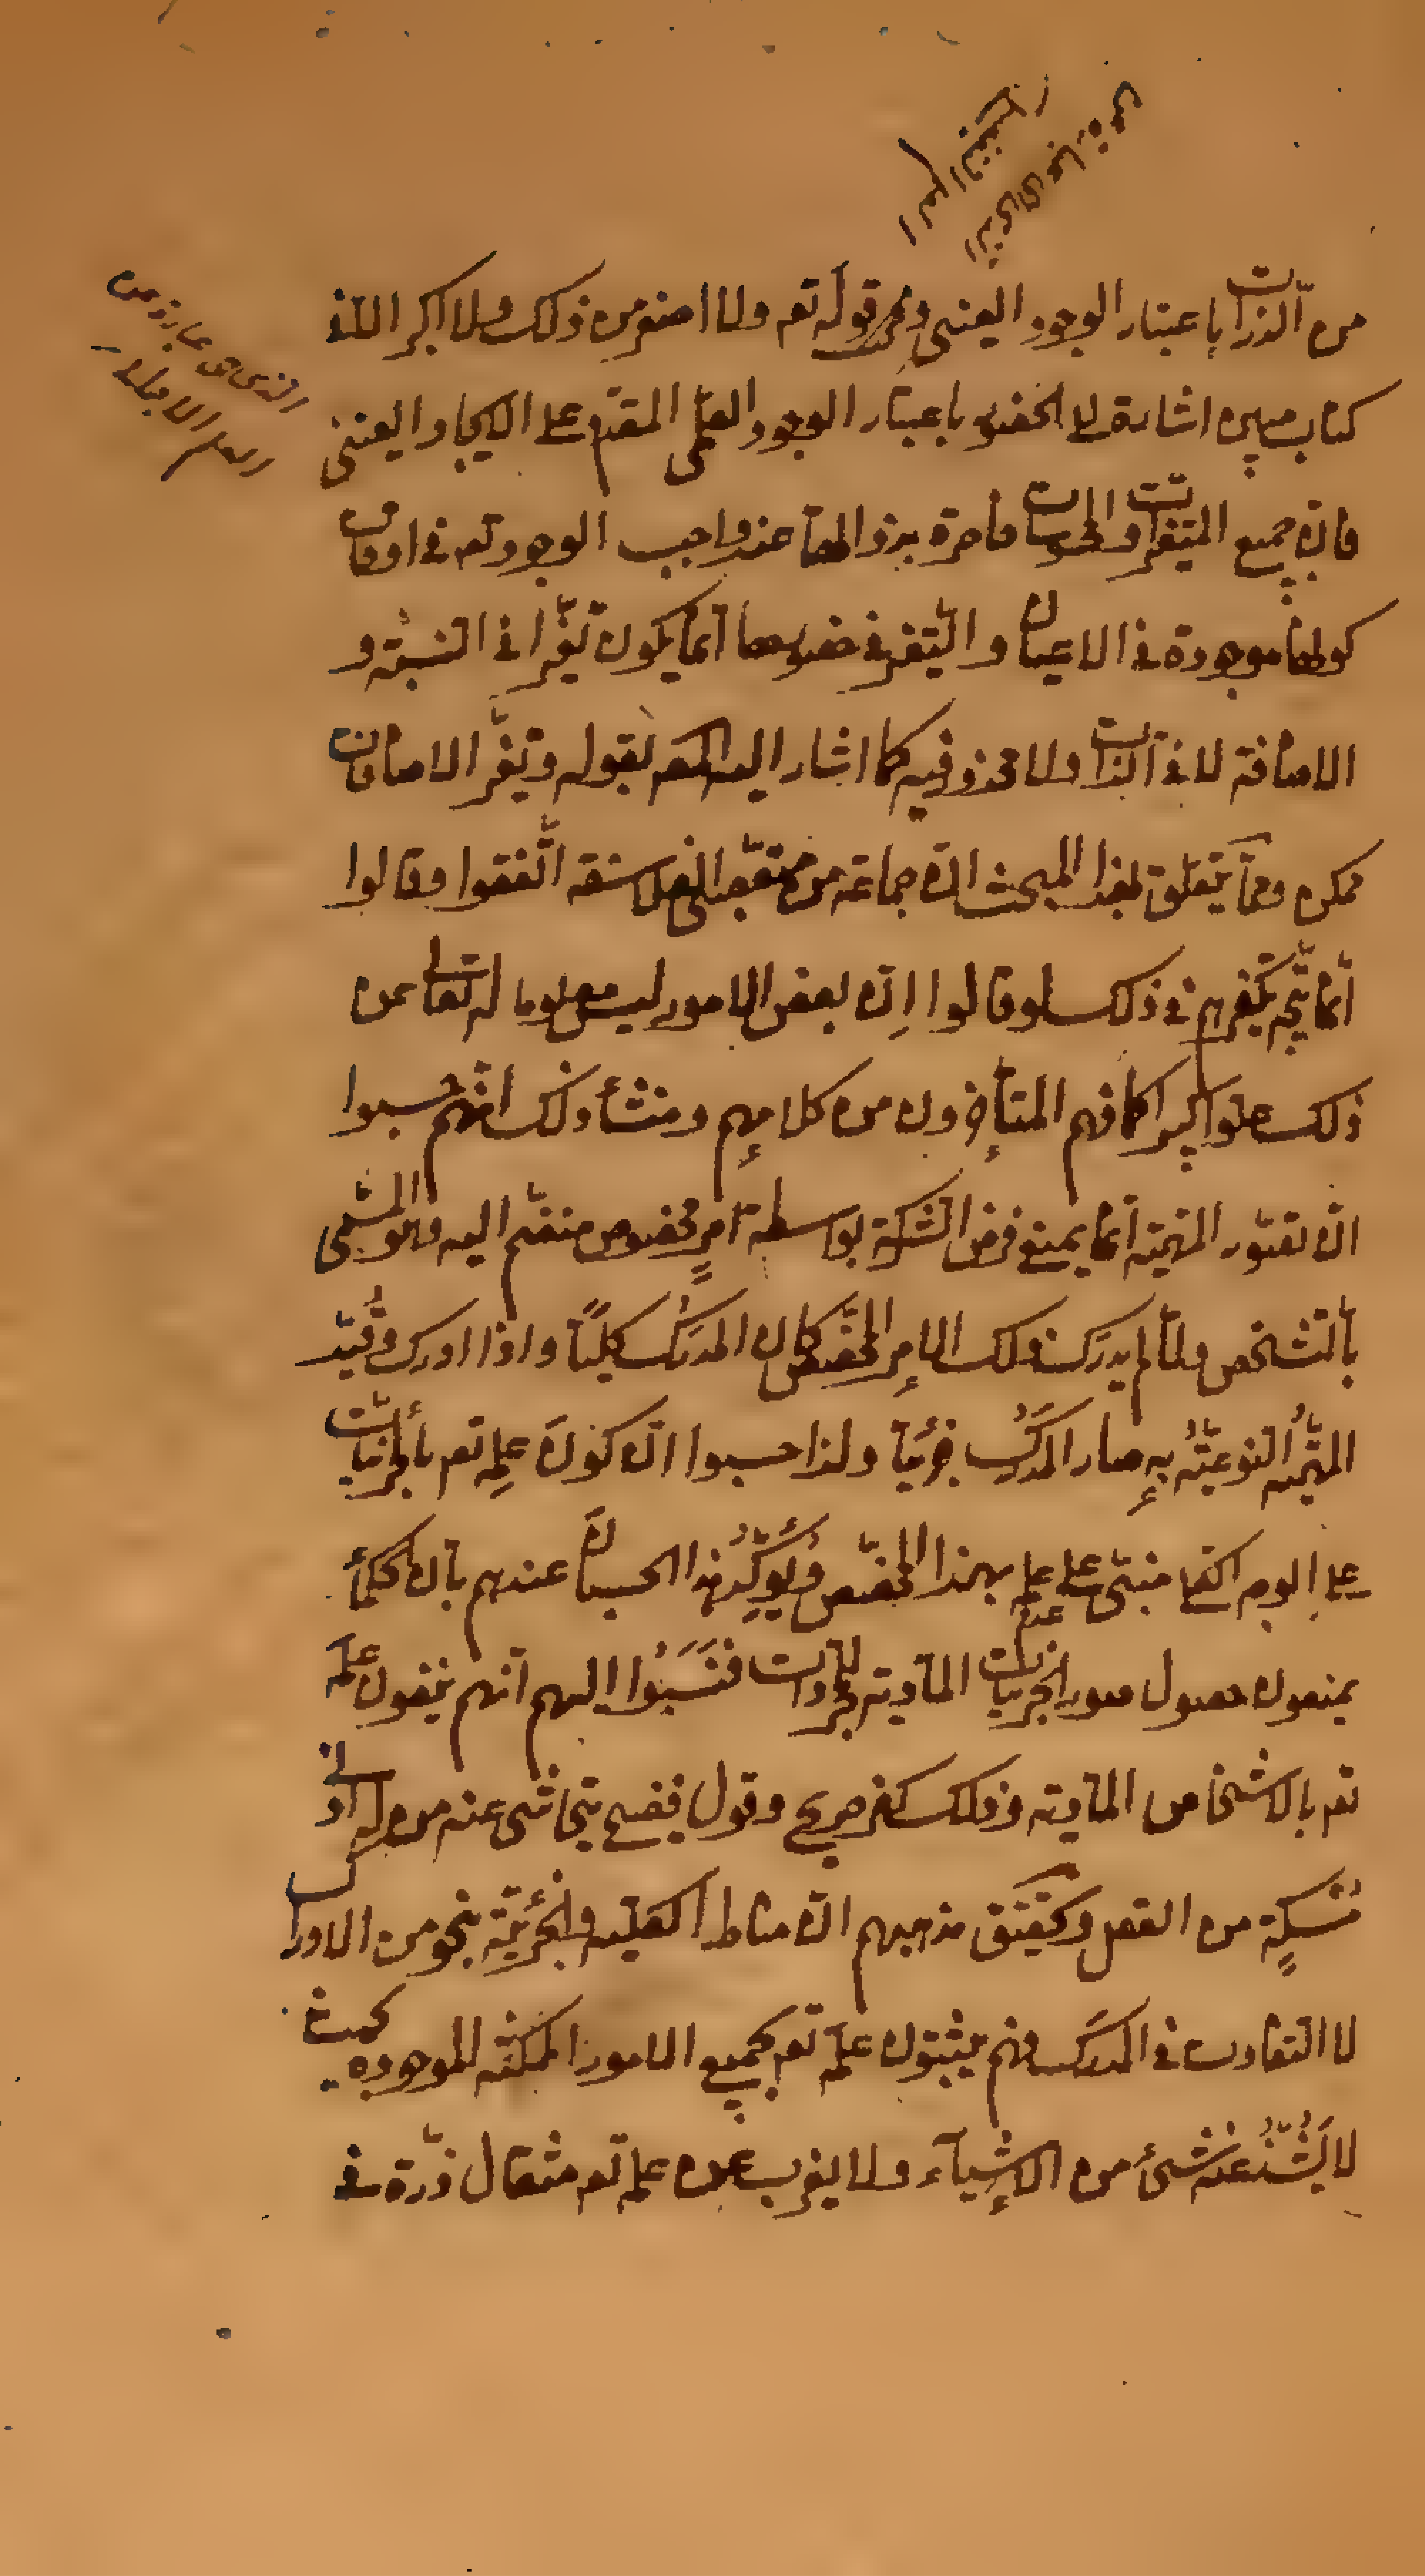 الذى هى عبارة عن
العلم التفصيلى
الذى هى عبارة عن
العلم الاجمالى
من الذرات باعتبار الوجود العينى وفى قوله تعم ولا اصغر من ذلك ولا اكبر الا فى
كتاب مبين اشارة الى الحضور باعتبار الوجود العلمى المقدّم على الايجاد العينى
فانّ جميع المتغيرات والحسيات حاضرة بذواتها عند واجب الوجود تعم فى اوقات
كونها موجودة فى الاعيان والتّغير فى حضورها انّما يكون تغيّرا فى النسبة و
الاضافة لا فى الذات ولا محذور فيه كما اشار اليه المصم بقوله وتغيّر الاضافات
ممكن وممّا يتعلّق بهذا المبحث انّ جماعة من متعصّبى الفلاسفة اتّفقوا وقالوا
انّما يتّجه تكفيرهم فى ذلك لو قالوا اِنّ بعض الامور ليس معلوما له تعالى عن
ذلك علوا كبيرا كما فهم المتأخرون من كلامهم ومنشأ ذلك انّهم حسبوا
انّ تصوّر المهيّة انّما يمنع فرض الشركة بواسطة امرٍ مخصوص منضمّ اليه وهو المسمّى
بالتّشخص ولمّا لم يدرَك ذلك الامر المخصّص كان المدرَك كليّاً واذا ادرك وقُيّد
المهيّة النوعيّة به صار المدرَكُ جزئيّا ولذا حسبوا انّ كونَ علمِه تعم بالجزئيّات
على الوجه الكلى مبنىّ على عدم علمه بهذا المخصّص ويُؤكّدُ هذا الحسبانَ عندهم بانّ الحكماء
يمنعون حصول صور الجزئيات المادية للمجرّدات فنَسَبُوا اليهم انّهم ينفون علمه
تعم بالاشخاص المادّية وذلك كفر صريح وقول فضيح يتحاشى عنه من له ادنى
مُسكةٍ من العقل وتحقيق مذهبهم انّ مناط الكلية والجزئيّة نحو من الادراك
لا التفاوت فى المدرَك فهم يثبتون علمه تعم بجميع الامور الممكنة الموجودة بحيث
لا يَشُذُّ عنه شئ من الاشيآء ولا يغرب عن علمه تعم مثقال ذرّة فى